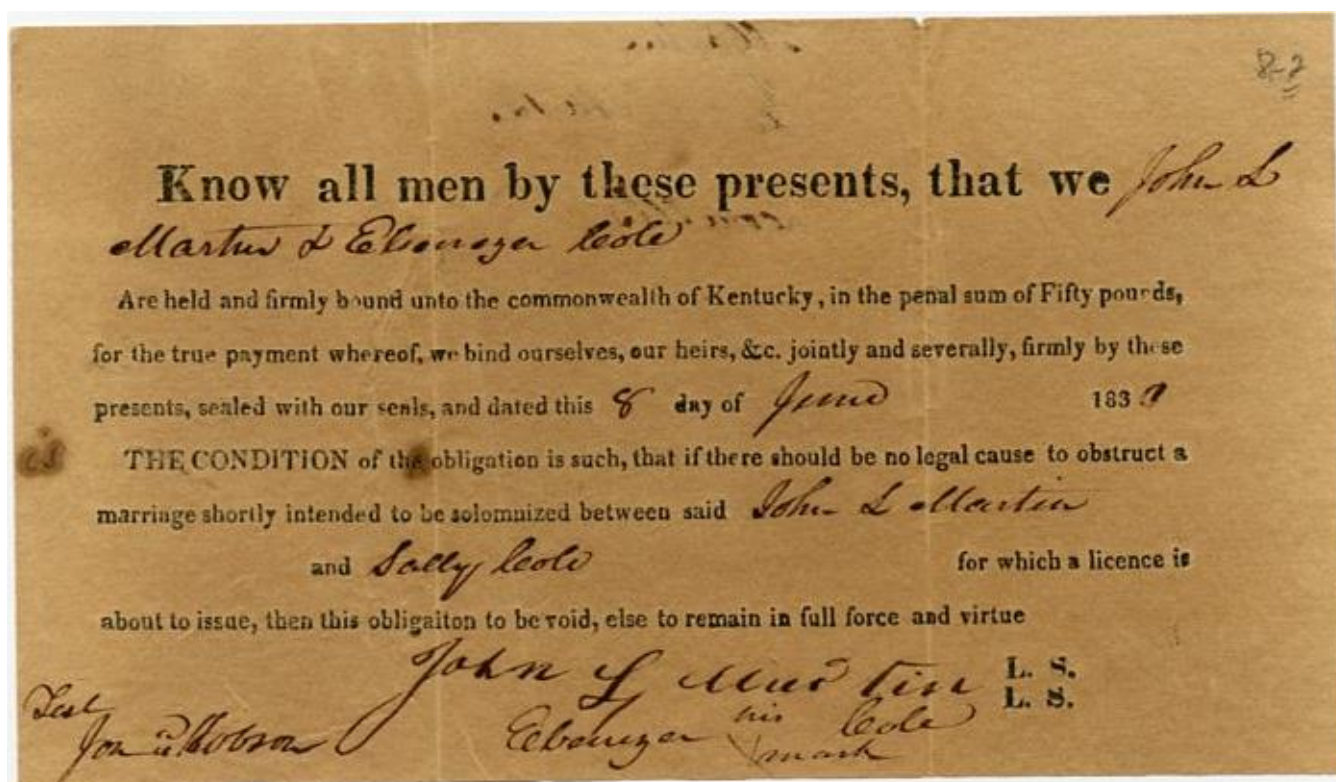 8-2
Know all men by these presents, that we John L
Martin & Ebenezer Cole
Are held and firmly bound unto the commonwealth of Kentucky, in the penal sum of Fifty pounds,
for the true payment whereof, we bind ourselves, our heirs, &c. jointly and severally, firmly by these
presents, sealed with our seals, and dated this 8 day of June 183
THE CONDITION of the obligation is such, that if there should be no legal cause to obstruct a
marriage shortly intended to be solomnized between said John L Martin
and Sally Cole for which a licence is
about to issue, then this obligaiton to be void, else to remain in full force and virtue
John L Martin L. S.
L. S.
Ebenezer his Cole
mark
Test
Hobson